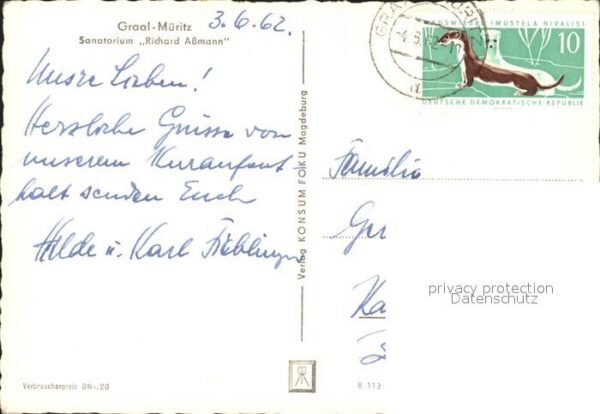 Graal-Müritz
Sanatorium „Richard Aßmann"
3.6.62.
Unsre Lieben!
Herzliche Grüsse von
unserem Kuraufent-
halt senden Euch
Hilde u. Karl
Verlag KONSUM FOKU Magdeburg
MAUSWIESEL (MUSTELA NIVALIS)
10
DEUTSCHE DEMOKRATISCHE REPUBLIK
Familie
Ger
Ka
privacy protection
Datenschutz
Verbraucherpreis DM -.20
B 113